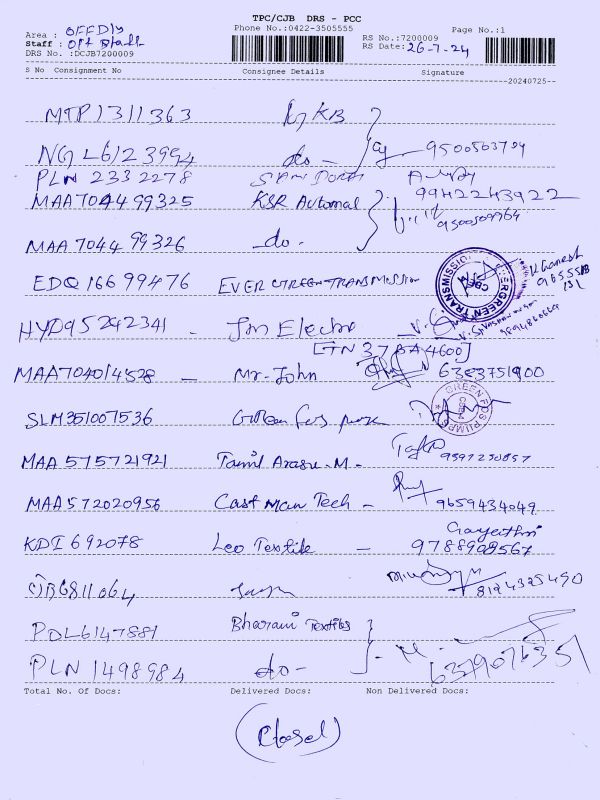 TPC/CJB DRS - PCC
Area : OFFDly Phone No.:0422-3505555 RS No.:7200009 Page No.:1
Staff : Off Staff RS Date: 26-7-24
DRS No. :DCJB7200009
S No Consignment No Consignee Details Signature
20240725
MTP1311363 KB
NGL6123994 do - 9500503794
PLN 2332278
MAA704499325 KSR Automal 9942243922
9500509964
MAA704499326 do -
EDQ16699476 EVERGREEN TRANSMISSION EVERGREEN TRANSMISSION CBE V. Ganesh
HYD95242341 - Jm Electro
[TN 37 BA 4600]
MAA704014528 - Mr. John 6383751900
SLM351007536 Green fos pump GREEN FOS PUMPS
MAA 575721921 Tamil Arasu - M. 9597230857
MAA 572020956 Cast Man Tech - 9659434049
KDI 692078 Leo Textile - Gayathri 9788909567
6811064 8124325490
PDL6147881 Bharani Textiles
PLN 1498984 do - 6379076351
Total No. Of Docs: Delivered Docs: Non Delivered Docs: